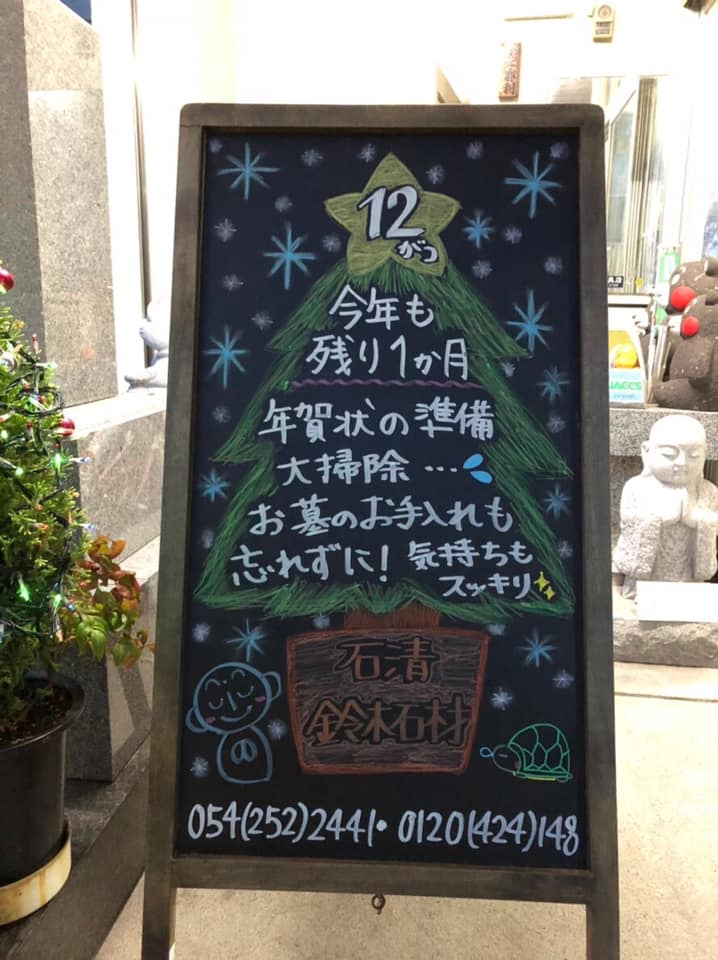 12
がつ
今年も
残り1か月
年賀状の準備
大掃除…
お墓のお手入れも
忘れずに! 気持ちも
スッキリ
石清
鈴木石材
054(252)2441・0120(424)148